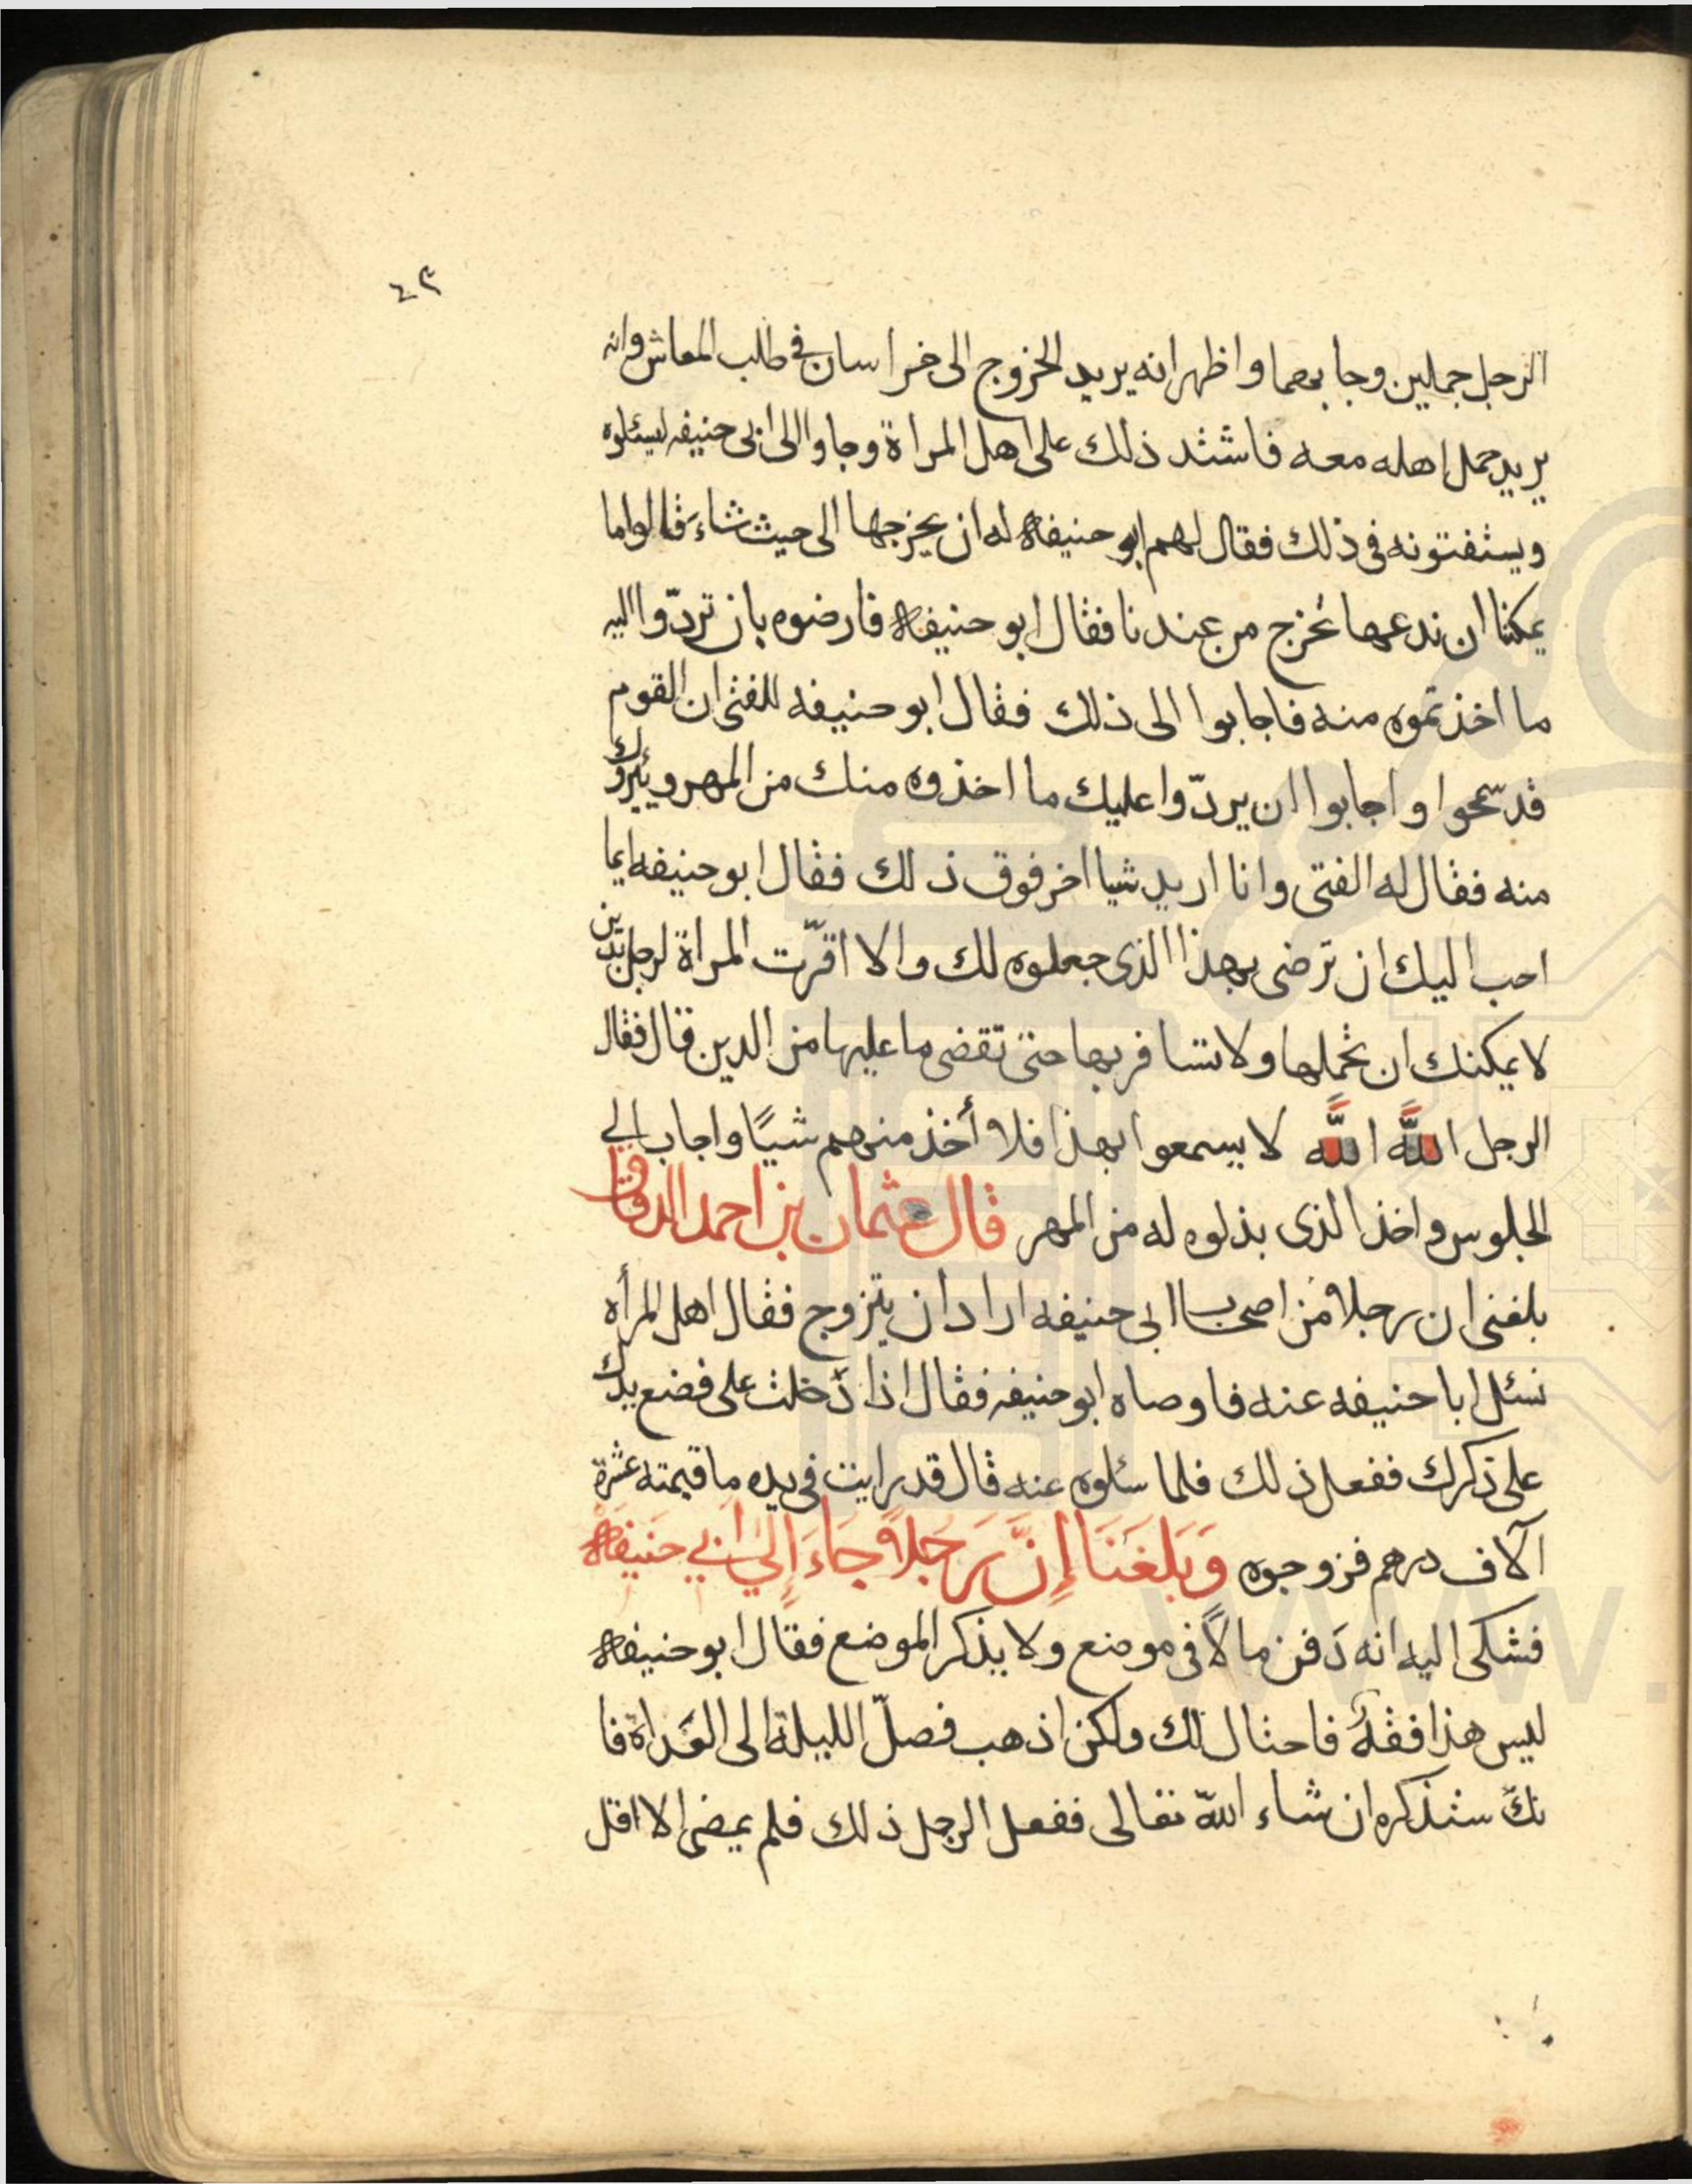 ٤٣
الرجل جملين وجا بهما واظهر انه يريد الخروج الى خراسان في طلب المعاش وانه
يريد حمل اهله معه فاشتد ذلك على اهل المراة وجاوا الى ابى حنيفه ليسئلوه
ويستفتونه فى ذلك فقال لهم ابو حنيفة له ان يخرجها الى حيث شاء قالوا ما
يمكننا ان ندعها تخرج من عندنا فقال ابو حنيفة فارضوه بان تردّوا اليه
ما اخذتموه منه فاجابوا الى ذلك فقال ابو حنيفه للفتى ان القوم
قد سمحوا واجابوا ان يردّوا عليك ما اخذوه منك من المهر ويبروك
منه فقال له الفتى وانا اريد شيا اخر فوق ذلك فقال ابو حنيفه ايما
احب اليك ان ترضى بهذا الذى جعلوه لك والا اقرّت المراة لرجل بدين
لا يمكنك ان تحملها ولا تسافر بها حتى تقضى ما عليها من الدين قال فقال
الرجل اللَّه اللَّه لا يسمعوا بهذا فلا أخذ منهم شيًا واجاب الي
الجلوس واخذ الذى بذلوه له من المهر قال عثمان بن احمد الدقاق
بلغنى ان رجلا من اصحاب ابى حنيفه اراد ان يتزوج فقال اهل المرأه
نسئل ابا حنيفه عنه فاوصاه ابو حنيفه فقال اذا دَخلت على فضع يدك
على ذكرك ففعل ذلك فلما سئلوه عنه قال قد رايت فى يده ما قيمته عشرة
آلاف درهم فزوجوه وَبَلَغَنَا إِنَّ رَجلاً جَاءَ إِلىَ ابي حَنيفَة
فشكى اليه انه دَفن مالاً فى موضع ولا يذكر الموضع فقال ابو حنيفة
ليس هذا فقهٌ فاحتال لك ولكن اذهب فصلّ الليلة الى الغَداة فا
نك ستذكره ان شاء اللّه تعالى ففعل الرجل ذلك فلم يمضى الا اقل
www.